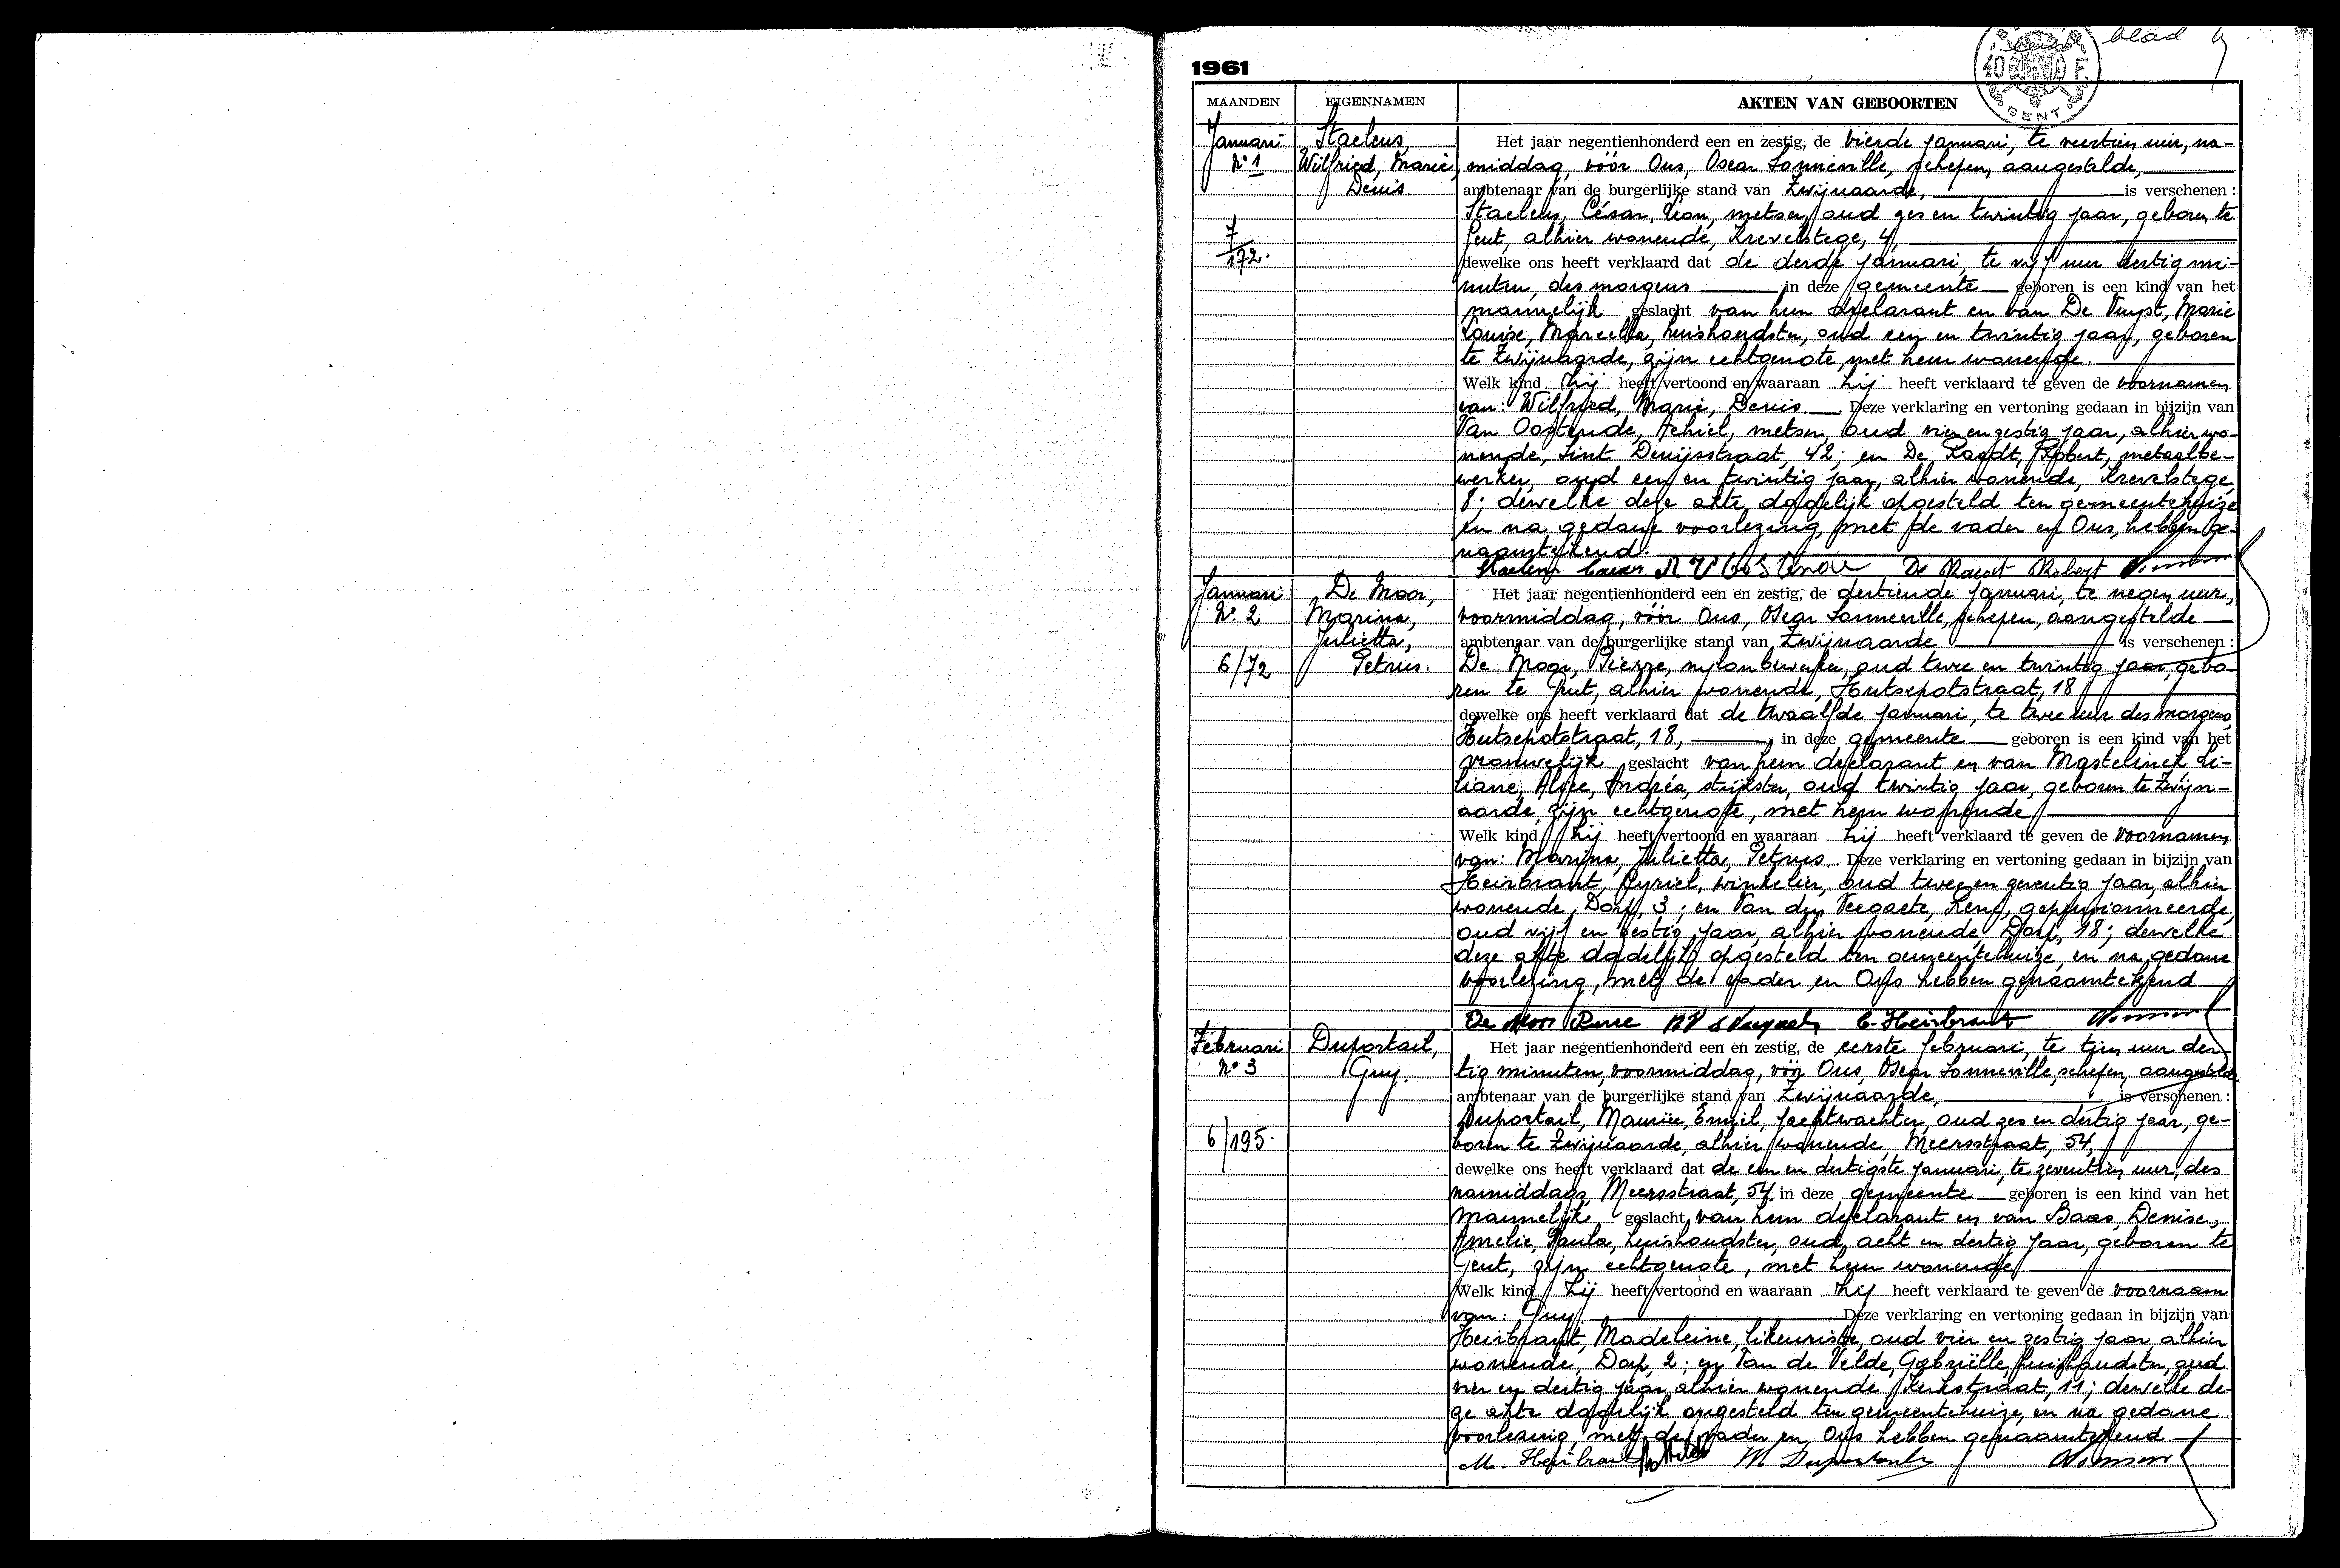 eerste blad
1961
40 F.
GENT
MAANDEN EIGENNAMEN AKTEN VAN GEBOORTEN
Januari
N° 1
7/172.
Staelens,
Wilfried, Marie,
Denis
Het jaar negentienhonderd een en zestig, de vierde januari, te veertien uur, na-
middag, vóór Ons, Oscar Lonneville, schepen, aangestelde,
ambtenaar van de burgerlijke stand van Zwijnaarde, is verschenen :
Staelens, César, Léon, metser, oud zes en twintig jaar, geboren te
Gent, alhier wonende, Krevelstege, 4,
dewelke ons heeft verklaard dat de derde januari, te vijf uur dertig mi-
nuten, des morgens in deze gemeente geboren is een kind van het
mannelijk geslacht van hem declarant en van De Vuyst, Marie
Louise, Marcella, huishoudster, oud een en twintig jaar, geboren
te Zwijnaarde, zijn echtgenote, met hem wonende.
Welk kind hij heeft vertoond en waaraan hij heeft verklaard te geven de voornamen
van: Wilfried, Marie, Denis. Deze verklaring en vertoning gedaan in bijzijn van
Van Oostende, Achiel, metser, oud vier en zestig jaar, alhier wo-
nende, Sint Denijsstraat, 42; en De Raedt, Robert, metaalbe-
werker, oud een en twintig jaar, alhier wonende, Krevelstege,
8; dewelke deze akte dadelijk opgesteld ten gemeentehuize
en na gedane voorlezing, met de vader en Ons, hebben ge-
naamtekend.
Staelens César A V Oostende De Raedt Robert
Januari
N° 2
6/72
De Moor,
Marina,
Julietta,
Petrus.
Het jaar negentienhonderd een en zestig, de dertiende januari, te negen uur,
voormiddag, vóór Ons, Oscar Lonneville, schepen, aangestelde
ambtenaar van de burgerlijke stand van Zwijnaarde is verschenen :
De Moor, Pierre, nylonbewerker, oud twee en twintig jaar, gebo-
ren te Gent, alhier wonende, Hutsepotstraat, 18
dewelke ons heeft verklaard dat de twaalfde januari, te twee uur des morgens,
Hutsepotstraat, 18, in deze gemeente geboren is een kind van het
vrouwelijk geslacht van hem declarant en van Mastelinck Li-
liane, Alice, Andréa, strijkster, oud twintig jaar, geboren te Zwijn-
aarde, zijn echtgenote, met hem wonende
Welk kind hij heeft vertoond en waaraan hij heeft verklaard te geven de voornamen
van: Marina, Julietta, Petrus. Deze verklaring en vertoning gedaan in bijzijn van
Heirbrant, Cyriel, winkelier, oud twee en zeventig jaar, alhier
wonende, Dorp, 3; en Van der Veegaete, René, gepensionneerde,
oud vijf en zestig jaar, alhier wonende, Dorp, 18; dewelke
deze akte dadelijk opgesteld ten gemeentehuize, en na gedane
voorlezing, met de vader en Ons hebben genaamtekend
De Moor Pierre C. Heirbrant
Februari
N° 3
6/195.
Duportail,
Guy.
Het jaar negentienhonderd een en zestig, de eerste februari, te tien uur der-
tig minuten, voormiddag, vóór Ons, Oscar Lonneville, schepen, aangestelde
ambtenaar van de burgerlijke stand van Zwijnaarde, is verschenen :
Duportail, Maurice, Emiel, jachtwachter, oud zes en dertig jaar, ge-
boren te Zwijnaarde, alhier wonende, Meersstraat, 54,
dewelke ons heeft verklaard dat de een en dertigste januari, te zeventien uur, des
namiddags, Meersstraat, 54 in deze gemeente geboren is een kind van het
mannelijk geslacht van hem declarant en van Baas, Denise,
Amelie, Paula, huishoudster, oud acht en dertig jaar, geboren te
Gent, zijn echtgenote, met hem wonende
Welk kind hij heeft vertoond en waaraan hij heeft verklaard te geven de voornaam
van: Guy Deze verklaring en vertoning gedaan in bijzijn van
Heirbrant, Madeleine, likeuriste, oud vier en zestig jaar, alhier
wonende, Dorp, 2; en Van de Velde, Gabriëlle, huishoudster, oud
vier en dertig jaar, alhier wonende, Kerkstraat, 11; dewelke de-
ze akte dadelijk opgesteld ten gemeentehuize, en na gedane
voorlezing, met de vader en Ons hebben genaamtekend
M. Heirbrant M Duportail